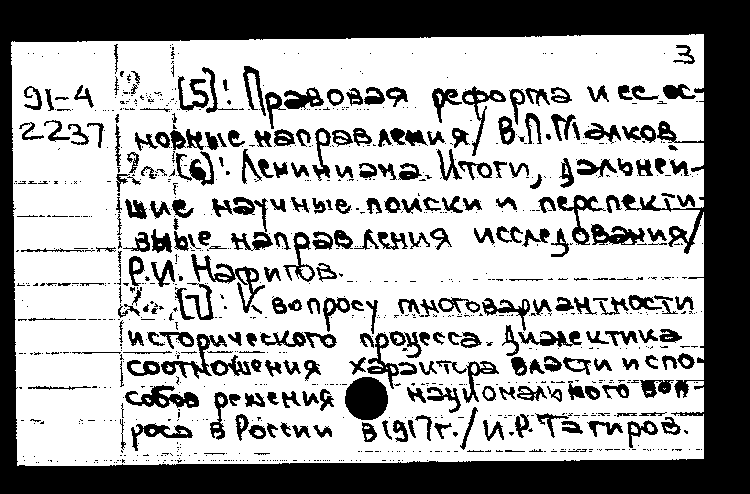 3
91-4 2л. [5]: Правовая реформа и ее ос-
2237 новные направления/ В.П.Малков
2л. [6]: Лениниана. Итоги, дальней-
шие научные поиски и перспекти-
вные направления исследования/
Р.И. Нафигов.
2л. [7]: К вопросу многовариантности
исторического процесса. Диалектика
соотношения характера власти и спо-
собов решения национального воп-
роса в России в 1917г./ И.Р. Тагиров.